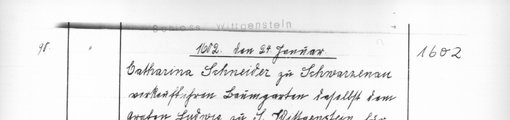 Schloss Wittgenstein
98. " 1602. den 24. Januar 1602
Catharina Schneider zu Schwarzenau
verkauft ihren Baumgarten daselbst dem
Grafen Ludwig zu S. Wittgenstein für